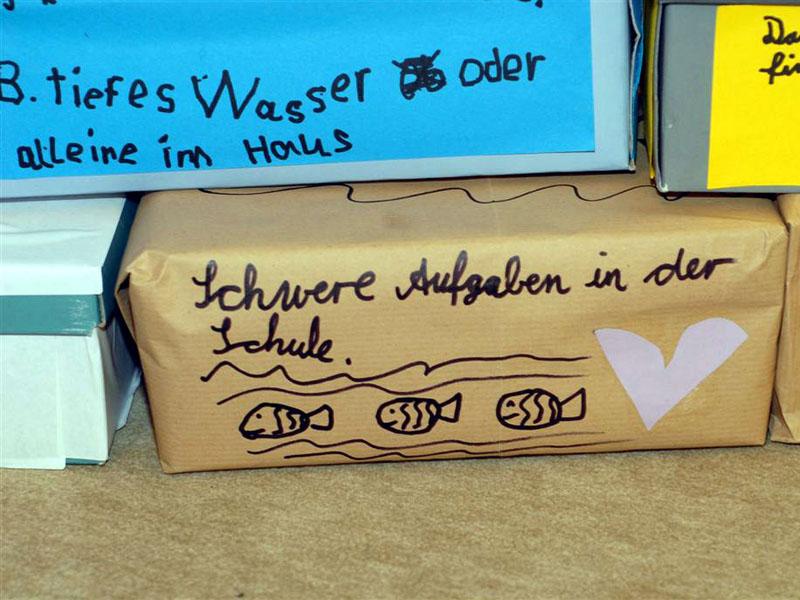 B. tiefes Wasser oder
alleine im Haus
Schwere Aufgaben in der
Schule.